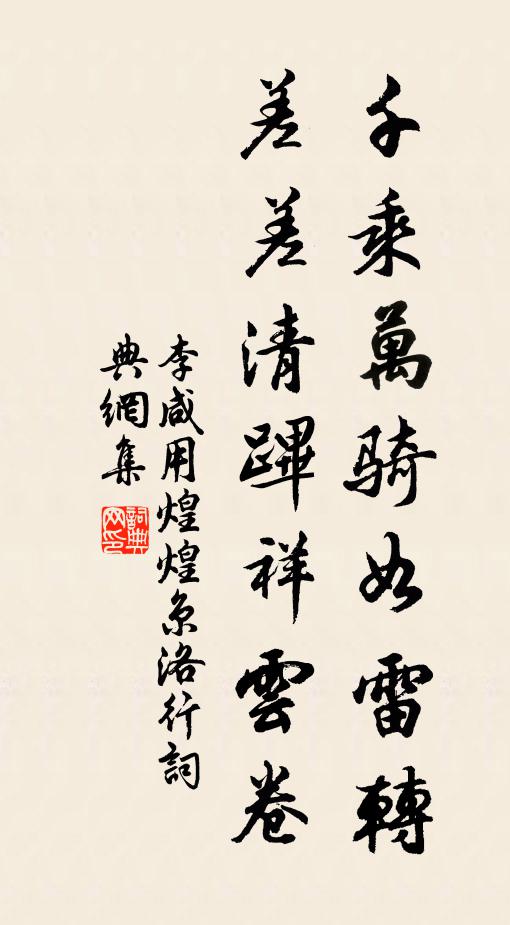 千乘萬騎如雷轉
差差清蹕祥雲卷
李咸用煌煌京洛行詞
典網集
詞典网印